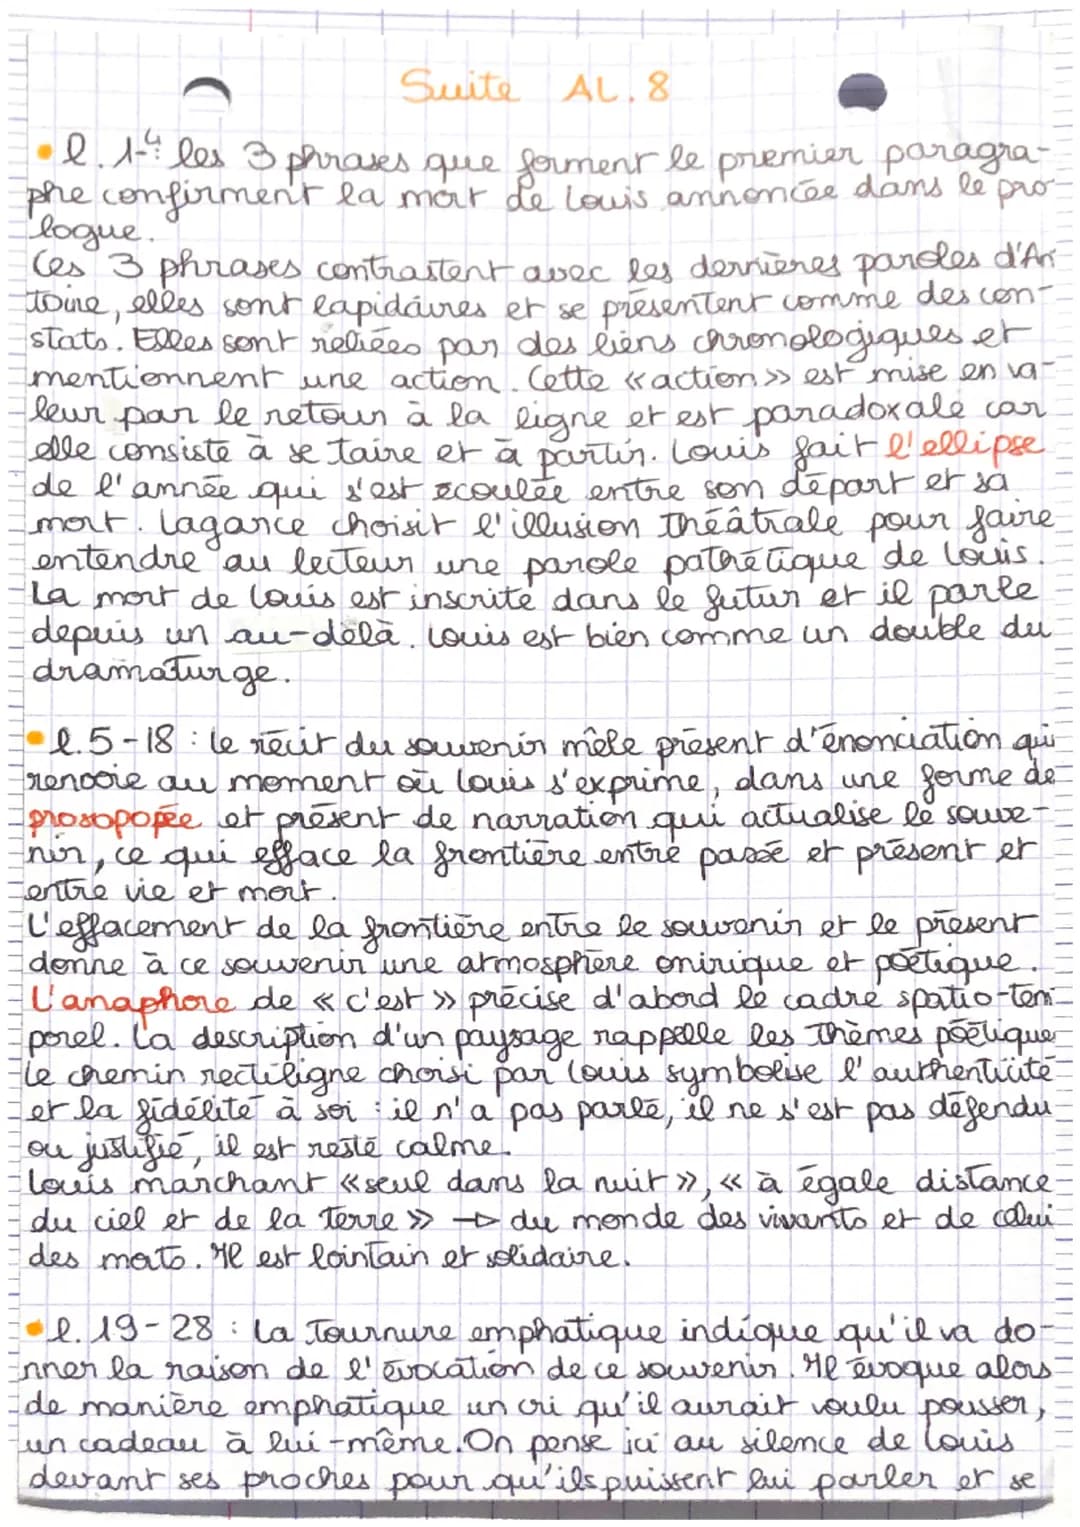 Suite AL.8
• l. 1-4 : les 3 phrases que forment le premier paragra-
phe confirment la mort de Louis annoncée dans le pro
logue.
Ces 3 phrases contrastent avec les dernières paroles d'An
toine, elles sont lapidaires et se présentent comme des con-
stats. Elles sont reliées par des liens chronologiques et
mentionnent une action. Cette «action» est mise en va-
leur par le retour à la ligne et est paradoxale car
elle consiste à se taire et à partir. Louis fait l'ellipse
de l'année qui s'est écoulée entre son départ et sa
mort. Lagarce choisit l'illusion théâtrale pour faire
entendre au lecteur une parole pathétique de Louis.
La mort de Louis est inscrite dans le futur et il parle
depuis un au-délà. Louis est bien comme un double du
dramaturge.
• l. 5-18 : le récit du souvenir mêle présent d'énonciation qui
renvoie au moment où Louis s'exprime, dans une forme de
prosopopée et présent de narration qui actualise le souve-
nir, ce qui efface la frontière entre passé et présent et
entre vie et mort.
L'effacement de la frontière entre le souvenir et le présent
donne à ce souvenir une atmosphère onirique et poétique.
L'anaphore de «c'est» précise d'abord le cadre spatio-tem
porel. La description d'un paysage rappelle les thèmes poétique
Le chemin rectiligne choisi par Louis symbolise l'authenticité
et la fidélité à soi : il n'a pas parlé, il ne s'est pas défendu
ou justifié, il est resté calme.
Louis marchant «seul dans la nuit», «à égale distance
du ciel et de la terre» → du monde des vivants et de celui
des morts. Il est lointain et solidaire.
• l. 19-28 : La tournure emphatique indique qu'il va do-
nner la raison de l'évocation de ce souvenir. Il évoque alors
de manière emphatique un cri qu'il aurait voulu pousser,
un cadeau à lui-même. On pense ici au silence de Louis
devant ses proches pour qu'ils puissent lui parler et se